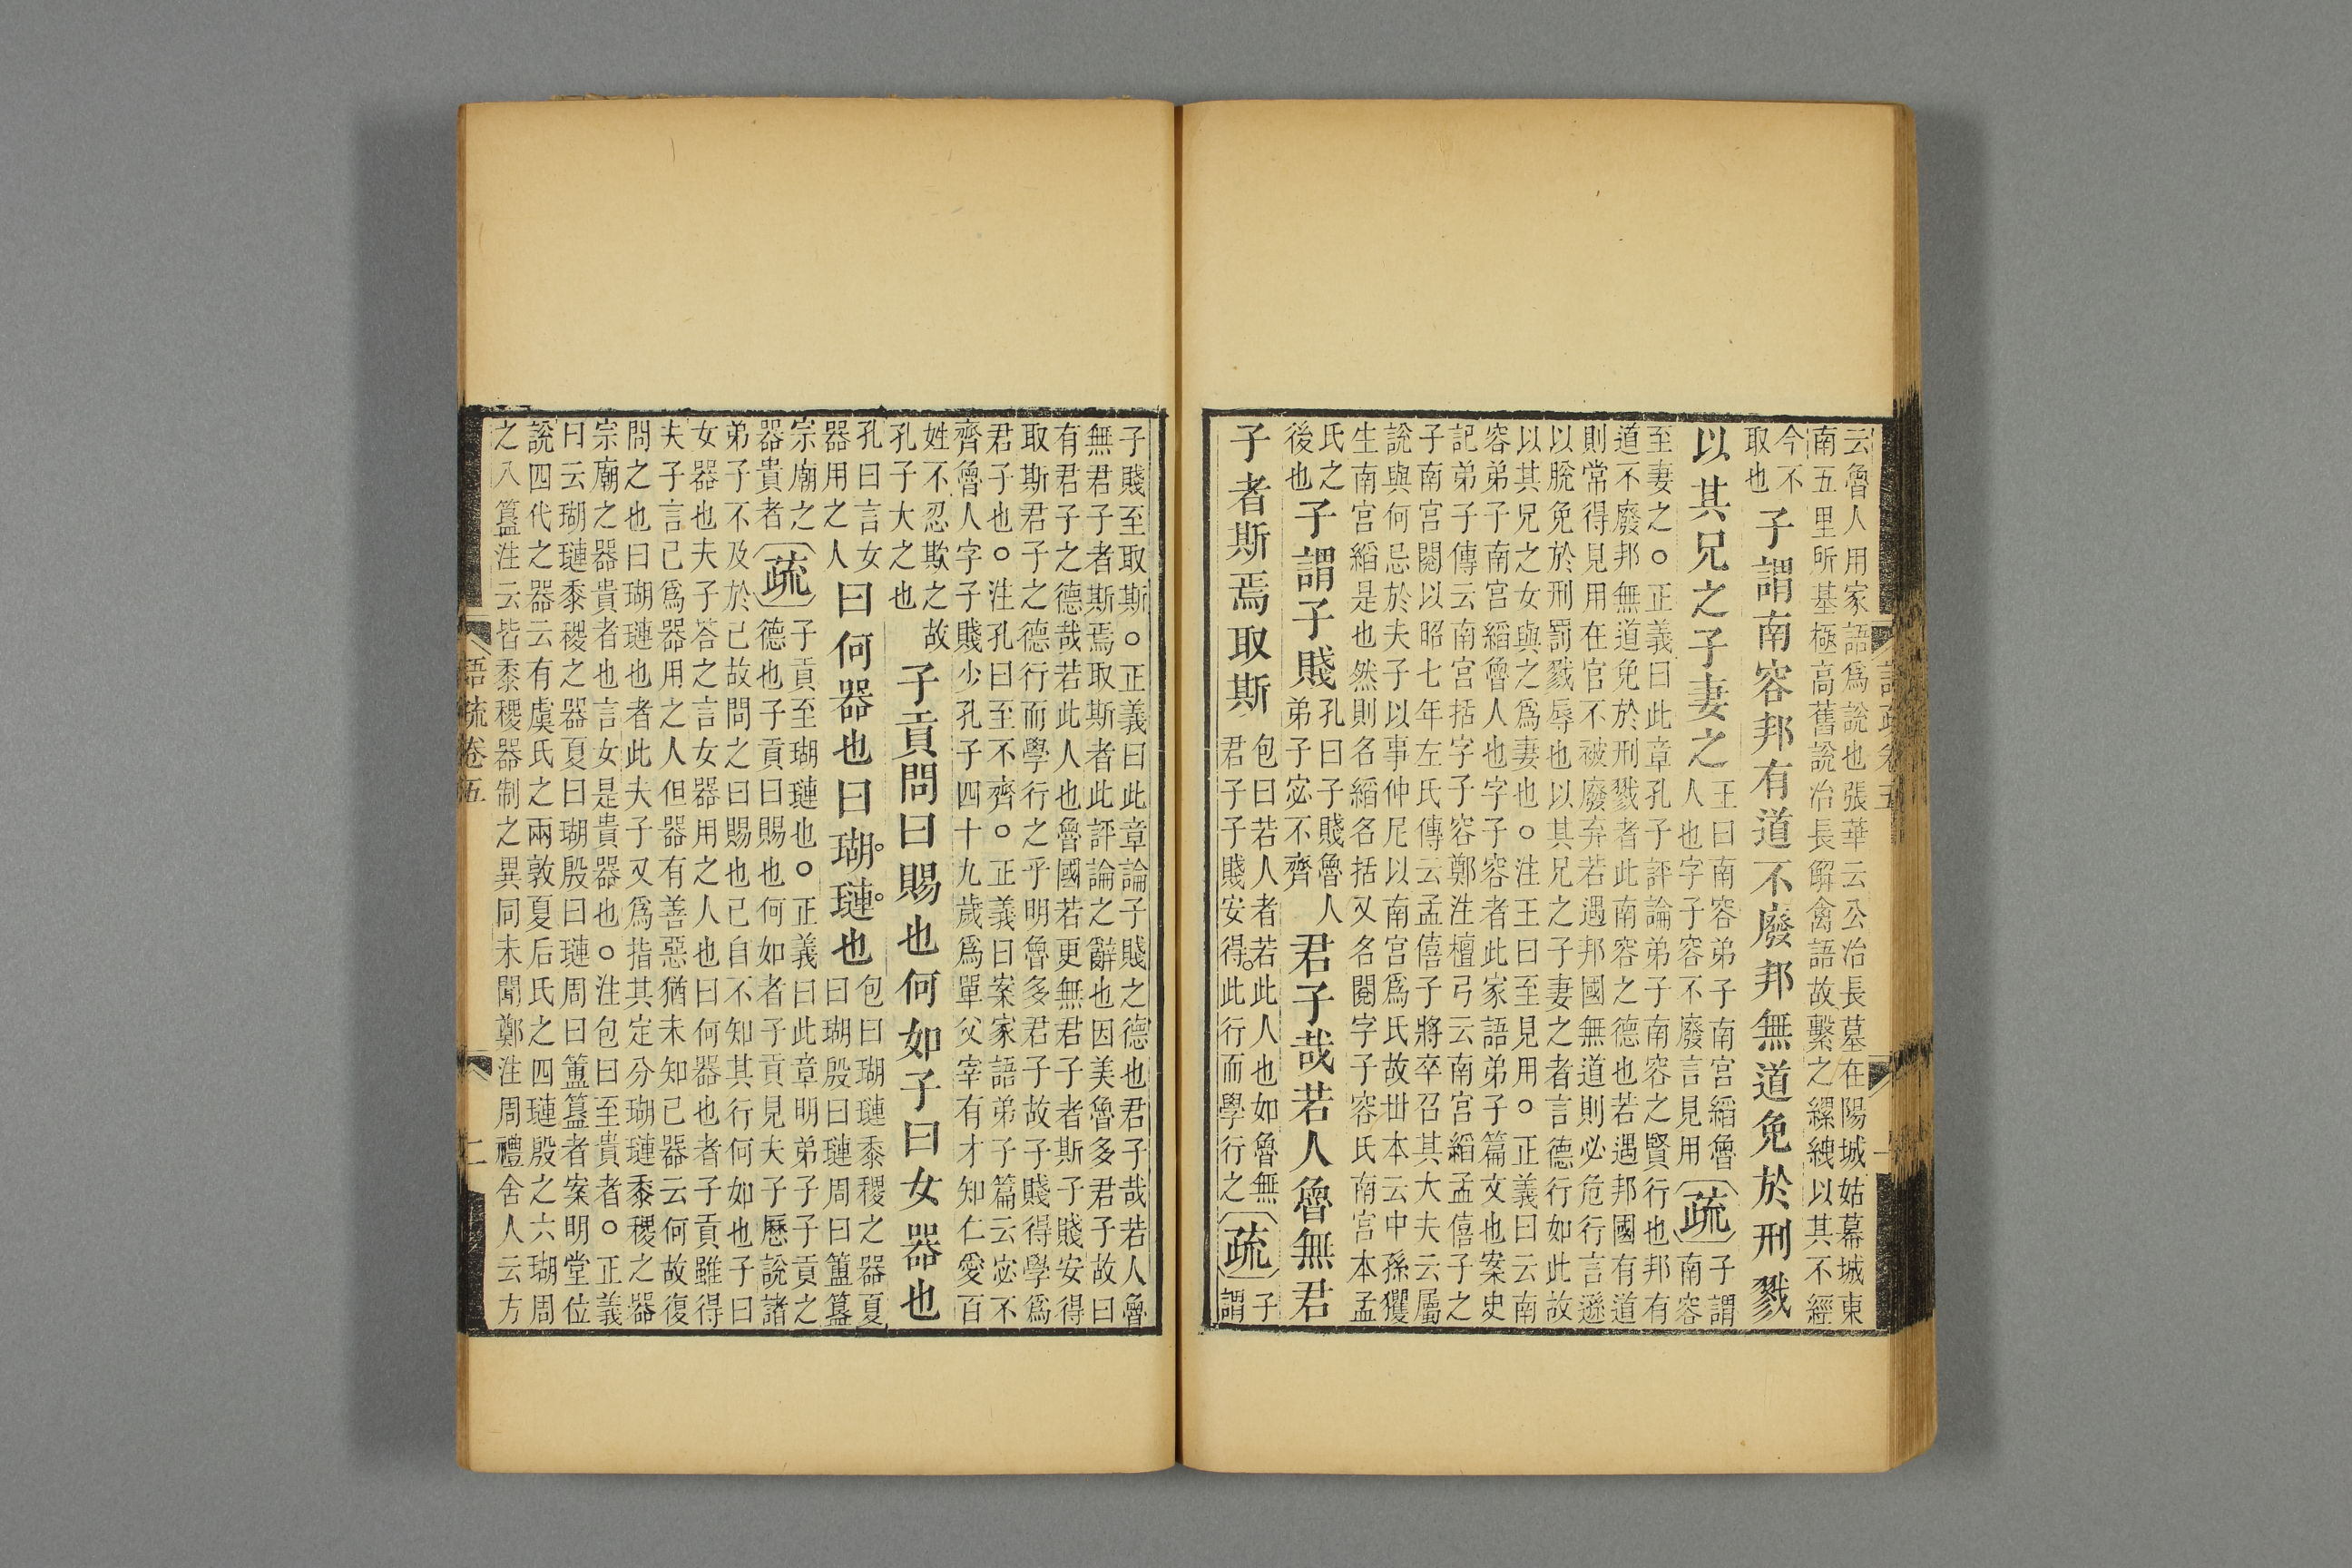 云魯人用家語爲說也張華云公冶長墓在陽城姑幕城東
南五里所基極高舊說冶長解禽語故繫之縲絏以其不經
今不
取也
子謂南容邦有道不廢邦無道免於刑戮
以其兄之子妻之
王曰南容弟子南宮縚魯
人也字子容不廢言見用
〔疏〕
子謂
南容
至妻之○正義曰此章孔子評論弟子南容之賢行也邦有
道不廢邦無道免於刑戮者此南容之德也若遇邦國有道
則常得見用在官不被廢弃若遇邦國無道則必危行言遜
以脫免於刑罰戮辱也以其兄之子妻之者言德行如此故
以其兄之女與之爲妻也○注王曰至見用○正義曰云南
容弟子南宮縚魯人也字子容者此家語弟子篇文也案史
記弟子傳云南宮括字子容鄭注檀弓云南宮縚孟僖子之
子南宮閱以昭七年左氏傳云孟僖子將卒召其大夫云屬
說與何忌於夫子以事仲尼以南宮爲氏故丗本云中孫玃
生南宮縚是也然則名縚名括又名閱字子容氏南宮本孟
氏之
後也
子謂子賤
孔曰子賤魯人
弟子宓不齊
君子哉若人魯無君
子者斯焉取斯
包曰若人者若此人也如魯無
君子子賤安得此行而學行之
〔疏〕
子
謂
子賤至取斯○正義曰此章論子賤之德也君子哉若人魯
無君子者斯焉取斯者此評論之辭也因美魯多君子故曰
有君子之德哉若此人也魯國若更無君子者斯子賤安得
取斯君子之德行而學行之乎明魯多君子故子賤得學爲
君子也○注孔曰至不齊○正義曰案家語弟子篇云宓不
齊魯人字子賤少孔子四十九歲爲單父宰有才知仁愛百
姓不忍欺之故
孔子大之也
子貢問曰賜也何如子曰女器也
孔曰言女
器用之人
曰何器也曰瑚璉也
包曰瑚璉黍稷之器夏
曰瑚殷曰璉周曰簠簋
宗廟之
器貴者
〔疏〕
子貢至瑚璉也○正義曰此章明弟子子貢之
德也子貢曰賜也何如者子貢見夫子歷說諸
弟子不及於己故問之曰賜也己自不知其行何如也子曰
女器也夫子荅之言女器用之人也曰何器也者子貢雖得
夫子言己爲器用之人但器有善惡猶未知己器云何故復
問之也曰瑚璉也者此夫子又爲指其定分瑚璉黍稷之器
宗廟之器貴者也言女是貴器也○注包曰至貴者○正義
曰云瑚璉黍稷之器夏曰瑚殷曰璉周曰簠簋者案明堂位
說四代之器云有虞氏之兩敦夏后氏之四璉殷之六瑚周
之八簋注云皆黍稷器制之異同未聞鄭注周禮舍人云方
語疏卷五
二